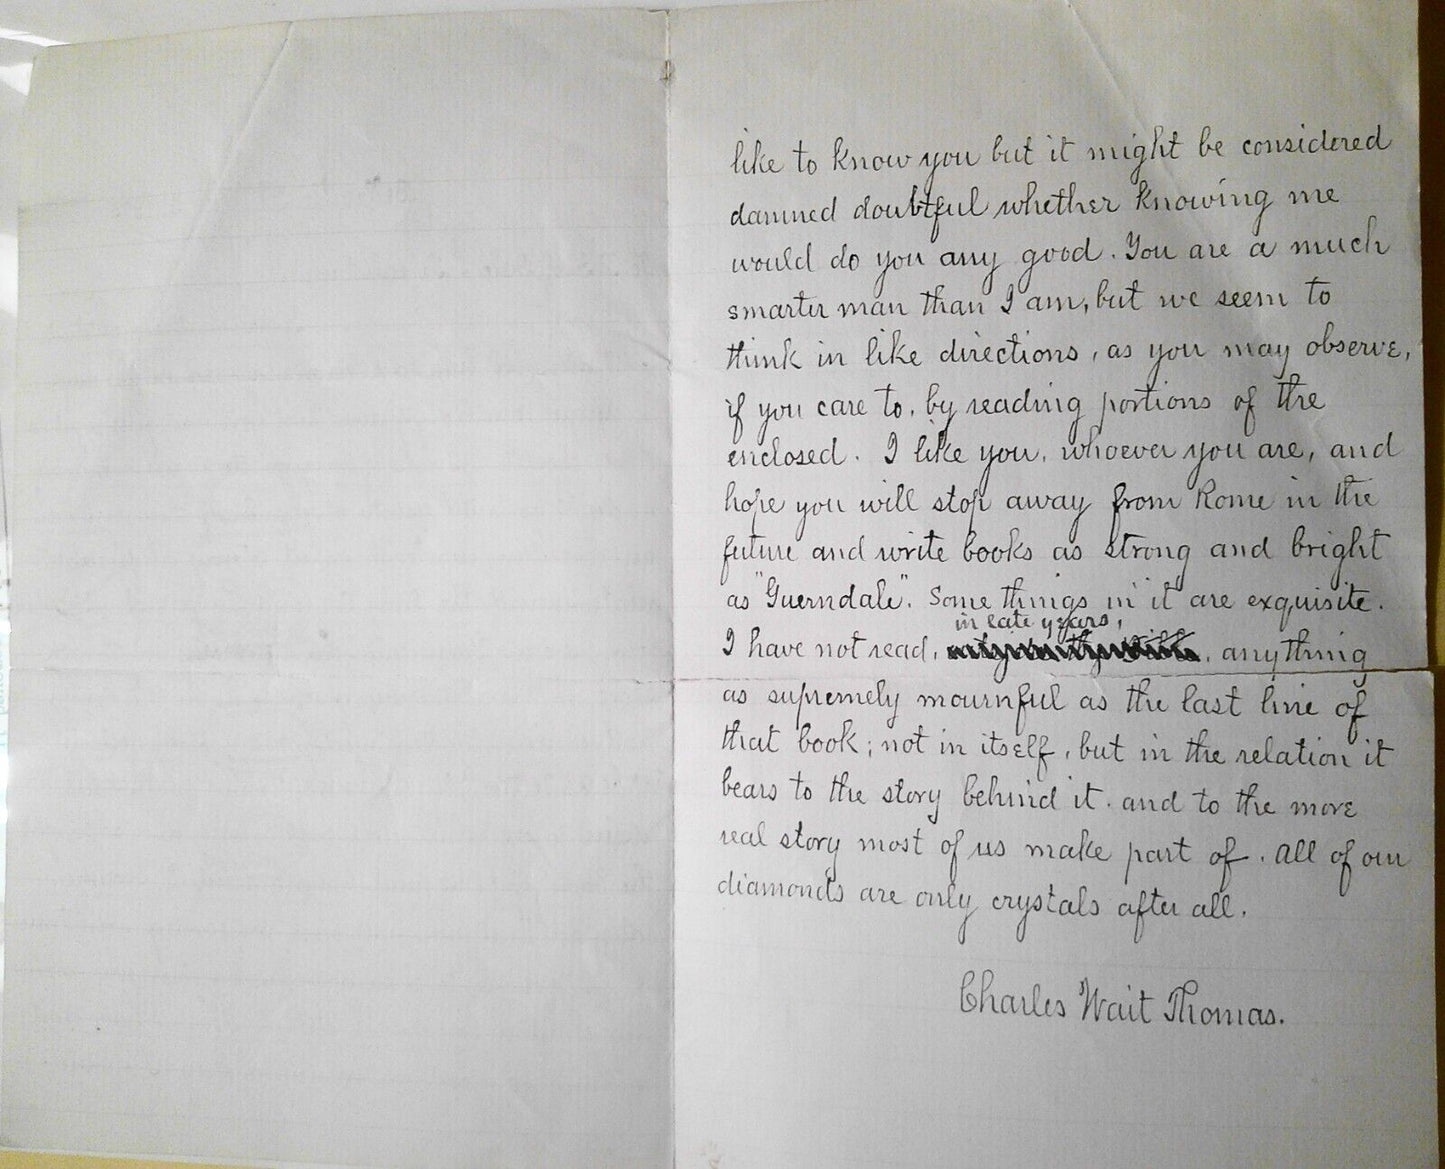 like to know you but it might be considered
damned doubtful whether knowing me
would do you any good. You are a much
smarter man than I am, but we seem to
think in like directions, as you may observe,
if you care to, by reading portions of the
enclosed. I like you, whoever you are, and
hope you will stop away from Rome in the
future and write books as strong and bright
as "Guerndale". Some things in it are exquisite.
in late years,
I have not read, , anything
as supremely mournful as the last line of
that book; not in itself, but in the relation it
bears to the story behind it. and to the more
real story most of us make part of. All of our
diamonds are only crystals after all.
Charles Wait Thomas.